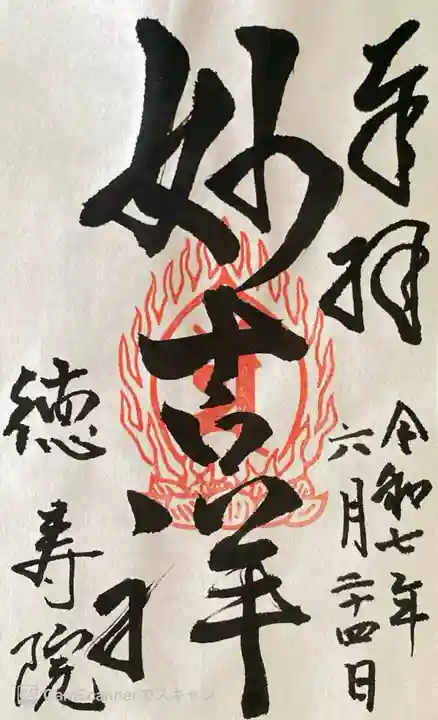 奉拝
令和七年
六月二十四日
妙吉祥
徳寿院
CamScannerでスキャン